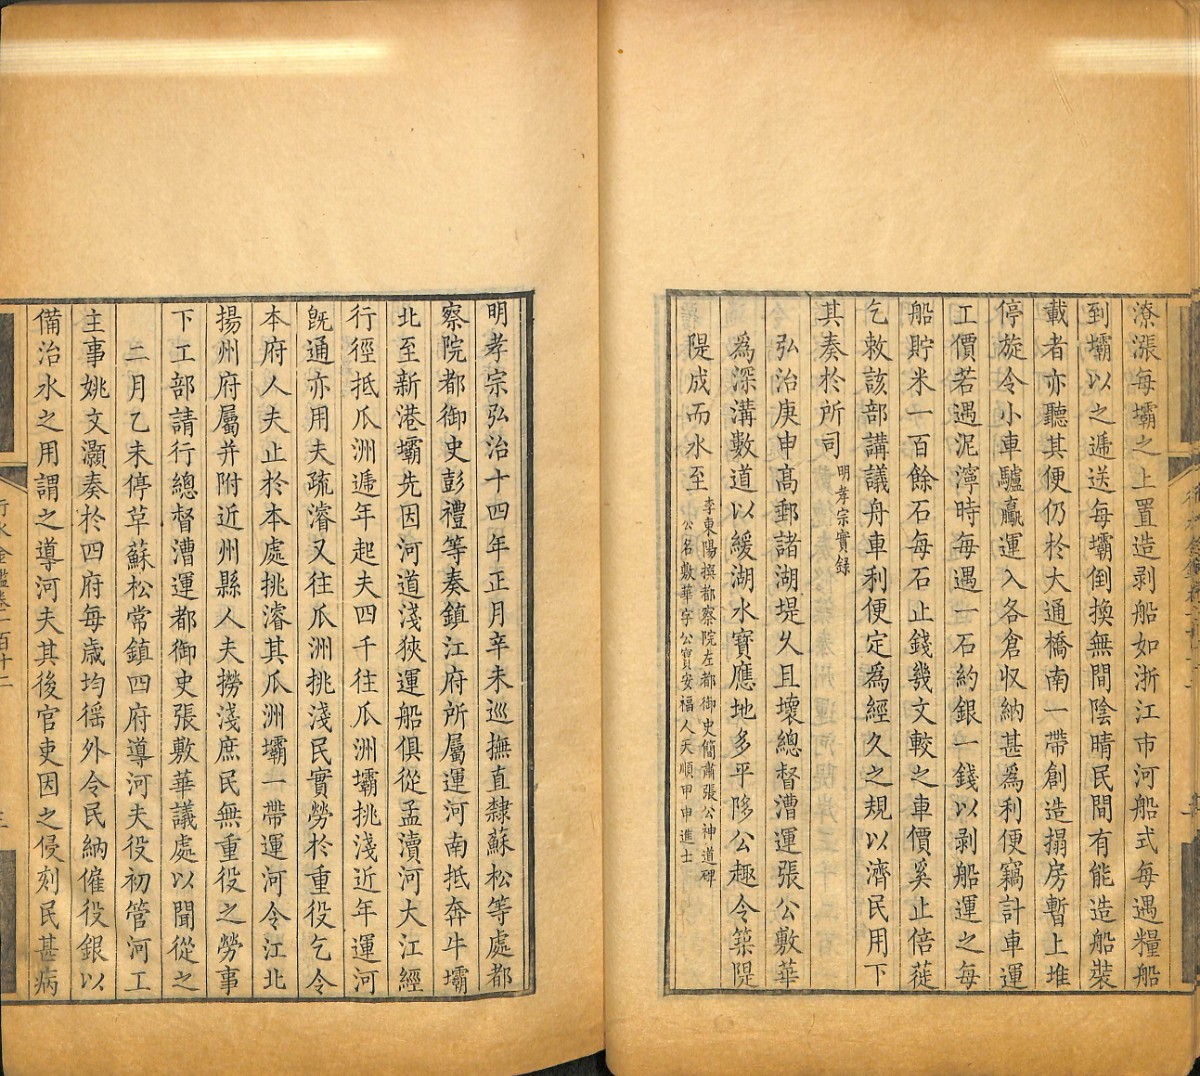 潦漲每壩之上置造剥船如浙江市河船式每遇糧船
到壩以之遞送每壩倒換無間陰晴民間有能造船裝
載者亦聽其便仍於大通橋南一帶創造搨房暫上堆
停旋令小車驢驘運入各倉収納甚爲利便竊計車運
工價若遇泥濘時每遇一石約銀一錢以剥船運之每
船貯米一百餘石每石止錢幾文較之車價奚止倍蓰
乞敕該部講議舟車利便定爲經久之規以濟民用下
其奏於所司明孝宗實錄
弘治庚申高郵諸湖堤久且壞總督漕運張公敷華
爲深溝數道以緩湖水寶應地多平陊公趣令築隄
隄成而水至李東陽撰都察院左都御史簡肅張公神道碑
公名敷華字公實安福人天順甲申進士
明孝宗弘治十四年正月辛未巡撫直隸蘇松等處都
察院都御史彭禮等奏鎮江府所屬運河南抵奔牛壩
北至新港壩先因河道淺狹運船俱從孟瀆河大江經
行徑抵瓜洲遞年起夫四千往瓜洲壩挑淺近年運河
旣通亦用夫疏濬又往瓜洲挑淺民實勞於重役乞令
本府人夫止於本處挑濬其瓜洲壩一帶運河令江北
揚州府屬并附近州縣人夫撈淺庶民無重役之勞事
下工部請行總督漕運都御史張敷華議處以聞從之
二月乙未停草蘇松常鎮四府導河夫役初管河工
主事姚文灝奏於四府每歲均徭外令民納僱役銀以
備治水之用謂之導河夫其後官吏因之侵刻民甚病
行水金鑑卷一百十二
三